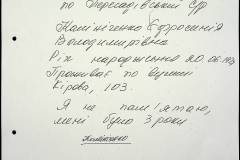 по Пересадівській с/р
Калініченко Єфросинія
Володимирівна
Рік народження 20.06.1923
Проживає по вулиці
Кірова, 103.
Я не пам'ятаю,
мені було 3 роки